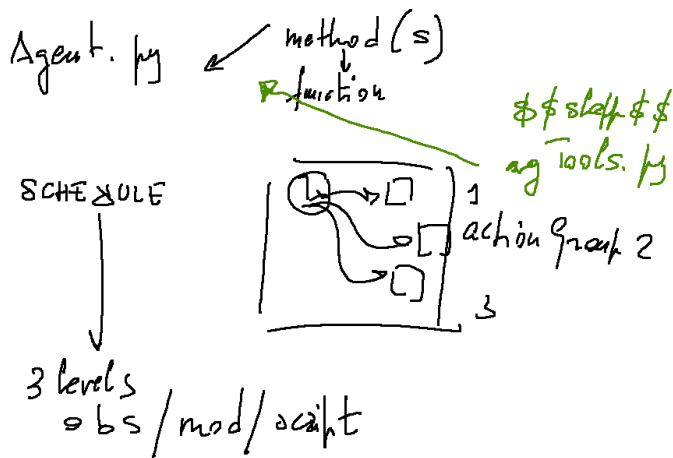 Agent. py
method(s)
function
$$slapp$$
agTools. py
SCHEDULE
1
action Group 2
3
3 levels
obs/mod/script